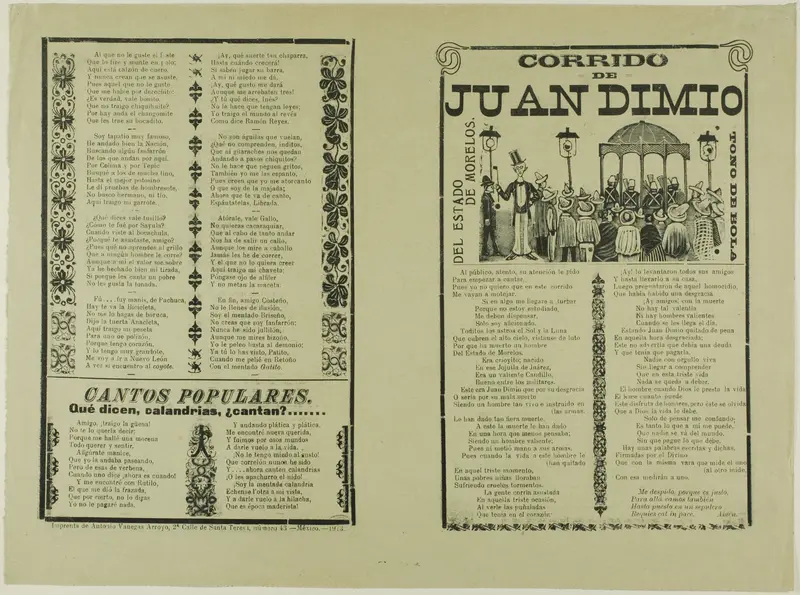 Al que no le guste el fuste
Que lo tire y monte en pelo;
Aquí está calzón de cuero,
Y nunca crean que se asuste,
Pues aquel que no le guste
Que me hable por derechito;
¿Es verdad, vale bonito,
Que no traigo chiquihuite?
Por hay anda el changomite
Que les trae su bocadito.
Soy tapatío muy famoso,
He andado bien la Nación,
Buscando algún fanfarrón
De los que andan por aquí.
Por Colima y por Tepic
Busqué a los de mucho tino,
Hasta el mejor potosino
Le dí pruebas de hombresote,
No busco hermano, ni tío,
Aquí traigo mi garrote.
¿Qué dices vale tosillo?
¿Cómo te fué por Sayula?
Cuando viste al bicnchula
¿Porqué te asustaste, amigo?
¿Pues qué no aprendes al grillo
Que a ningún hombre le corre?
Aunque a mí el valor me sobre
Yo he hechado bien mi tirada,
Si porque les canta un pobre
No les gusta la tonada.
muy manis, de Pachuca,
Hay te va la Bicicleta,
No me lo hagas de boruca,
Dijo la tuerta Anacleta,
Aquí traigo mi peseta
Para uno se peloaio,
Porque tengo corazón,
Y lo tengo muy grandote,
Me voy a ir a Nuevo León
A ver si encuentro al coyote.
¡Ay, qué suerte tan chaparra,
Hasta cuándo crecerá!
Si sabré jugar su barra,
A mí ni miedo me dá,
¡Ay, qué gusto me dará
Aunque me arrebaten tres!
¿Y tú qué dices, Inés?
No le hace que tengan leyes;
Yo traigo el mundo al revés
Como dice Ramón Reyes.
No son águilas que vuelan,
¿Qué no comprenden, inditos,
Que sí guaraches nos quedan
Andando a pasos chiquitos?
No le hace que peguen gritos,
También yo me las espanto,
Pues creen que yo me atoranto
O que soy de la majada;
Ahora que te va de canto,
Espántatelas, Librada.
Atórale, vale Gallo,
No quieras cacaraquiar,
Que al cabo de tanto andar
Nos ha de salir un callo,
Aunque los mire a caballo
Jamás les he de correr,
Y él que no lo quiera creer
Aquí traigo mi chaveta:
Póngase ojo de alfiler
Y no metan la maceta.
En fin, amigo Costeño,
No te llenes de ilusión,
Soy el mentado Briseño,
No creas que soy fanfarrón:
Nunca he sido jalitlón,
Aunque me mires bizoño,
Yo le peleo hasta al demonio;
Ya tú lo has visto, Patiño,
Cuando me peleé en Retoño
Con el mentado Gatito.
CANTOS POPULARES.
Qué dicen, calandrias, ¿cantan?.......
Amigo, ¡traigo la gloria!
No te lo quería decir:
Porque me hallé una morena
Todo querer y sentir.
Aigúrate manico,
Que yo la andaba paseando,
Pero de esas de verbena,
Cuando uno dice ¡ahora es cuando!
Y me encontré con Rutilo,
El que me dió la frazada,
Que por cierto, no lo digas
Yo no le pagaré nada.
Y andando plática y plática,
Me encontré nuera querida,
Y fuimos por esos mundos
A darle vuelo a la vida.
¡No le tengo miedo al susto!
Que correlón nunca he sido
Y... ahora canten, calandrias
¡O les apachurro el nido!
¡Soy la mentada calandria
Échense l'otra a mi vista,
Y a darle vuelo a la hilacha,
Que es época maderista!
Imprenta de Antonio Vanegas Arroyo, 2ª Calle de Santa Teresa, número 43.—México.—1913.
CORRIDO
DE
JUAN DIMIO
DEL ESTADO
DE MORELOS.
TOÑO DE BOLA
Al público, atento, su atención le pido
Para empezar a cantar,
Pues yo no quiero que en este corrido
Me vayan a molejar.
Si en algo me llegara a turbar
Porque no estoy estudiado,
Me deben dispensar,
Sólo soy aficionado.
Toditos los astros el Sol y la Luna
Que cubren el alto cielo, vístense de luto
Por que ha muerto un hombre
Del Estado de Morelos.
Era criollito, nacido
En ese Jojutla de Juárez,
Era un valiente Caudillo,
Bueno entre los militares.
Este era Juan Dimio que por su desgracia
O sería por su mala suerte
Siendo un hombre tan vivo e instruido en
las armas.
Le han dado tan fiera muerte.
A este la muerte le han dado
En una hora que menos pensaba;
Siendo un hombre valiente,
Pues ni metió mano a sus armas.
Pues cuando la vida a este hombre le
han quitado
En aquel triste momento,
Unas pobres niñas lloraban
Sufriendo crueles tormentos.
La gente corría asustada
En aquella triste reunión,
Al verle las puñaladas
Que tenía en el corazón.
¡Ay! lo levantaron todos sus amigos
Y hasta llevarlo a su casa,
Luego preguntaron de aquel homocidio,
Que había habido una desgracia.
¡Ay amigos! con la muerte
No hay tal valentía
Ni hay hombres valientes
Cuando se les llega el día.
Estando Juan Dimio quitado de pena
En aquella hora desgraciada;
Este no advertía que debía una deuda
Y que tenía que pagarla.
Nadie con orgullo viva
Sin llegar a comprender
Que en esta triste vida
Nada se queda a deber.
El hombre cuando Dios le presta la vida
El hore cuanto puede
Este disfruta de honores, pero éste se olvida
Que a Dios la vida le debe.
Sólo de pensar me confundo:
Es tanto lo que a mí me puede,
Que nadie se va del mundo,
Sin que pague lo que debe.
Hay unas palabras escritas y dichas,
Firmadas por el Divino
Que con la misma vara que mide el uno
(al otro mide.
Con esa medirán a uno.
Me despido, porque es justo,
Para allá vamos también
Hasta puesto en un sepulcro
Requies cat in pace. Amén.